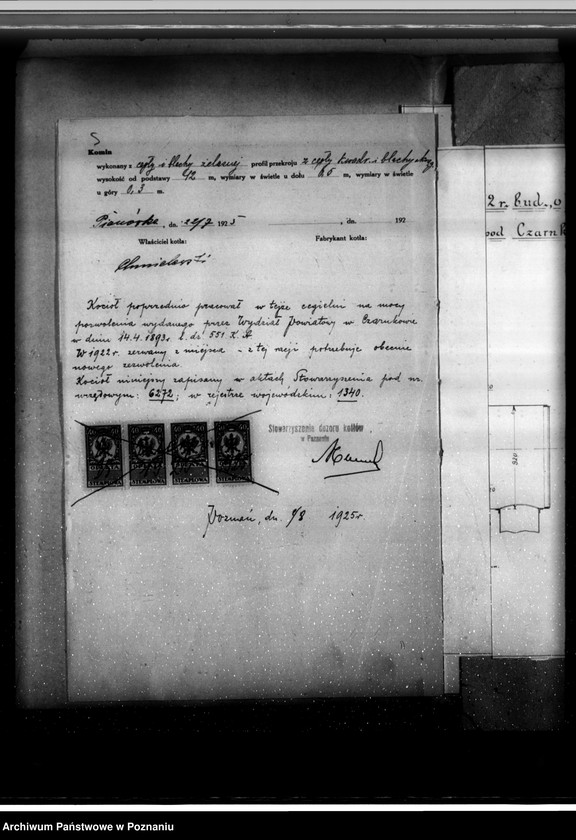 5
Komin
wykonany z cegły i blachy żelaznej profil przekroju z cegły kwadr. i blachy
wysokość od podstawy 42 m, wymiary w świetle u dołu 0.5 m, wymiary w świetle
u góry 0,3 m.
dn. 22/7 1925 , dn. 192
Właściciel kotła: Fabrykant kotła:
Kocioł poprzednio pracował w tejże cegielni na mocy
pozwolenia wydanego przez Wydział Powiatowy w Czarnkowie
w dniu 14.4.1893. l. dz. 551 K.A.
W 1922 r. zerwany z miejsca - z tej racji potrzebuje obecnie
nowego zezwolenia.
Kocioł niniejszy zapisany w aktach Stowarzyszenia pod nr.
urzędowym: 6272; w rejestrze wojewódzkim: 1340.
Stowarzyszenie dozoru kotłów
w Poznaniu
40 40 40 40 40 40 40 40
OPŁATA OPŁATA
STEMPLOWA STEMPLOWA STEMPLOWA STEMPLOWA
Poznań, dn. 1/8 1925 r.
2 r. bud., o
pod Czarnk
920
Archiwum Państwowe w Poznaniu